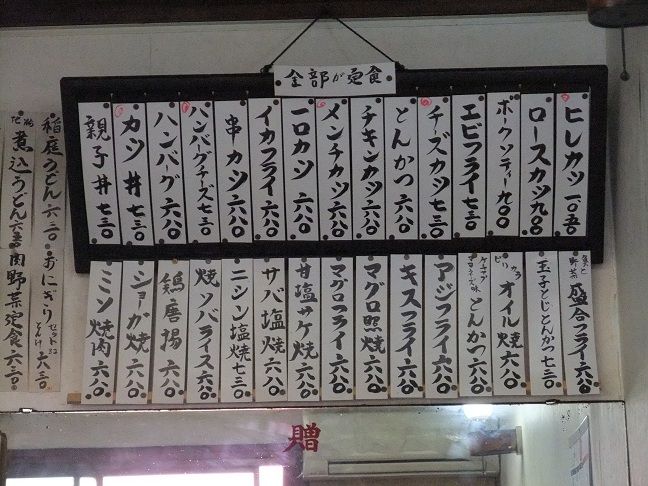 全部が定食
ヒレカツ 一〇五〇
ロースカツ 九〇〇
ポークソティー 九〇〇
エビフライ 七三〇
チーズカツ 七三〇
とんかつ 六八〇
チキンカツ 六八〇
メンチカツ 六八〇
一口カツ 六八〇
イカフライ 六八〇
串カツ 六八〇
ハンバーグチーズ 七三〇
ハンバーグ 六八〇
カツ丼 七三〇
親子丼 七三〇
魚と野菜 盛合フライ 六八〇
玉子とじとんかつ 七三〇
ピリカラ オイル焼 六八〇
とんかつ 六八〇
アジフライ 六八〇
キスフライ 六八〇
マグロ照焼 六八〇
マグロフライ 六八〇
甘塩サケ焼 六八〇
サバ塩焼 六八〇
ニシン塩焼 七三〇
焼ソバライス 六八〇
鶏唐揚 六八〇
ショーガ焼 六八〇
ミソ焼肉 六八〇
稲庭うどん 六三〇 おにぎり 六三〇
煮込うどん 肉野菜定食 六三〇
贈